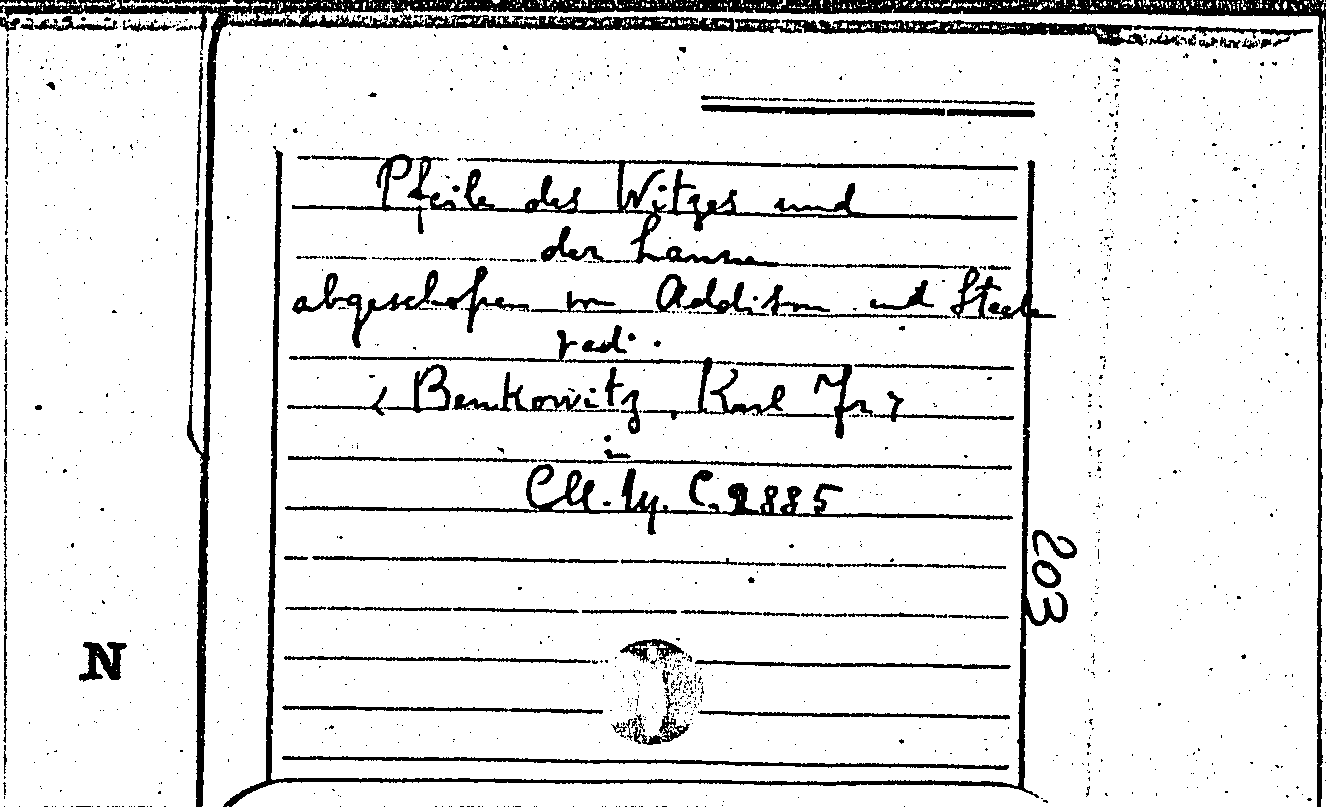 Pfeile des Witzes und
der Laune
abgeschossen von Addison und Steele
< Benkowitz, Karl Fr >
in
C. 2885
203
N